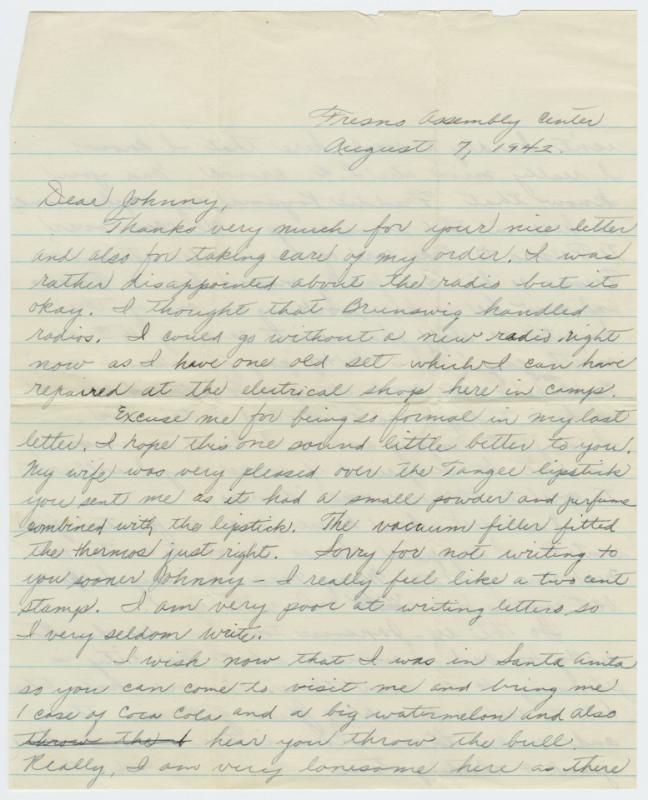 Fresno Assembly Center
August 7, 1942.
Dear Johnny,
Thanks very much for your nice letter
and also for taking care of my order. I was
rather disappointed about the radio but its
okay. I thought that Brunswig handled
radios. I could go without a new radio right
now as I have one old set which I can have
repaired at the electrical shop here in camp.
Excuse me for being so formal in my last
letter. I hope this one sound little better to you.
My wife was very plessed over the Tangee lipstick
you sent me as it had a small powder and perfume
combined with the lipstick. The vacuum filler fitted
the thermos just right. Sorry for not writing to
you sooner Johnny – I really feel like a two cent
stamp. I am very poor at writing letters so
I very seldom write.
I wish now that I was in Santa Anita
so you can come to visit me and bring me
1 case of Coca Cola and a big watermelon and also
throw the hear you throw the bull.
Really, I am very lonesome here as there